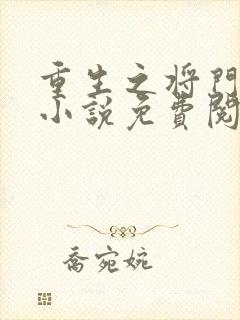 重生之将門
小說免費閱
喬宛婉